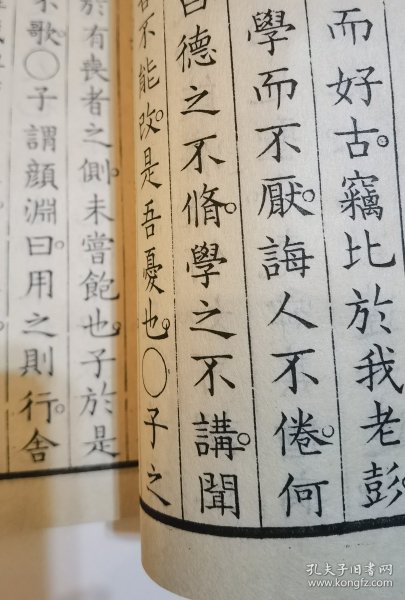 而好古。竊比於我老彭。
學而不厭。誨人不倦。何
曰德之不脩。學之不講。聞
不能改。是吾憂也。〇子之
於有喪者之側。未嘗飽也。子於是
不歌。〇子謂顏淵曰用之則行。舍
孔夫子旧书网
www.kongfz.com